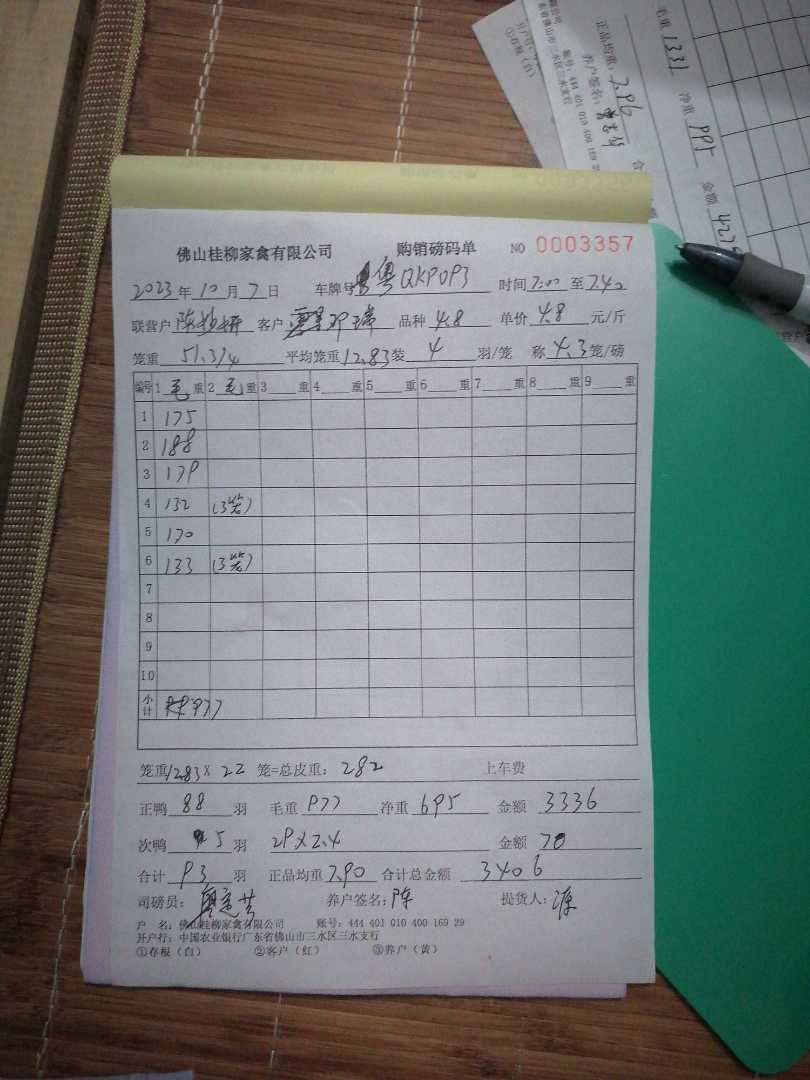 佛山桂柳家禽有限公司 购销磅码单 NO 0003357
2023年10月7日 车牌号粤QKP0P3 时间7:00至7.40
联营户 陈 客户 邓瑞 品种4.8 单价4.8元/斤
笼重51.3/4 平均笼重12.83装4羽/笼 称4.3笼/磅
编号 1毛重 2毛重 3重 4重 5重 6重 7重 8重 9重
1 175
2 188
3 179
4 132 (3笼)
5 170
6 133 (3笼)
7
8
9
10
小计 977
笼重12.83×22笼=总皮重:282 上车费
正鸭88羽 毛重977 净重695 金额3336
次鸭5羽 29×2.4 金额70
合计93羽 正品均重7.90 合计总金额3406
司磅员: 养户签名:陈 提货人:
户 名:佛山桂柳家禽有限公司 账号:444 401 010 400 169 29
开户行:中国农业银行广东省佛山市三水区三水支行
①存根(白) ②客户(红) ③养户(黄)
毛重1331 净重995 金额
正品均重:7.96
养户签名:
账号:444 401 010 400 169
东省佛山市三水区三水支行
①存根(白)